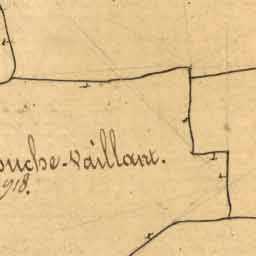 ouche-Vaillant.
918.